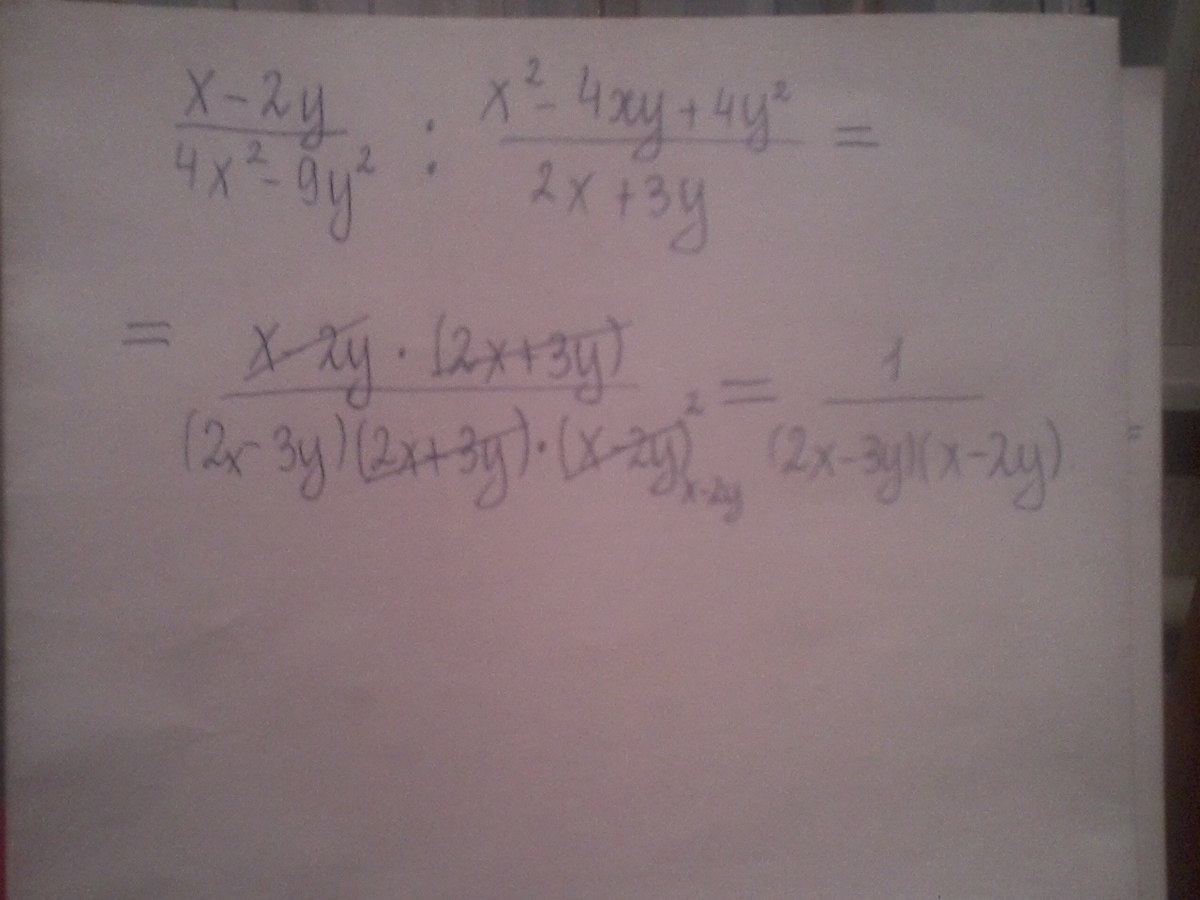 x-2y / 4x²-9y² : x²-4xy+4y² / 2x+3y =
= x-2y · (2x+3y) / (2x-3y)(2x+3y)·(x-2y)² x-2y = 1 / (2x-3y)(x-2y) =